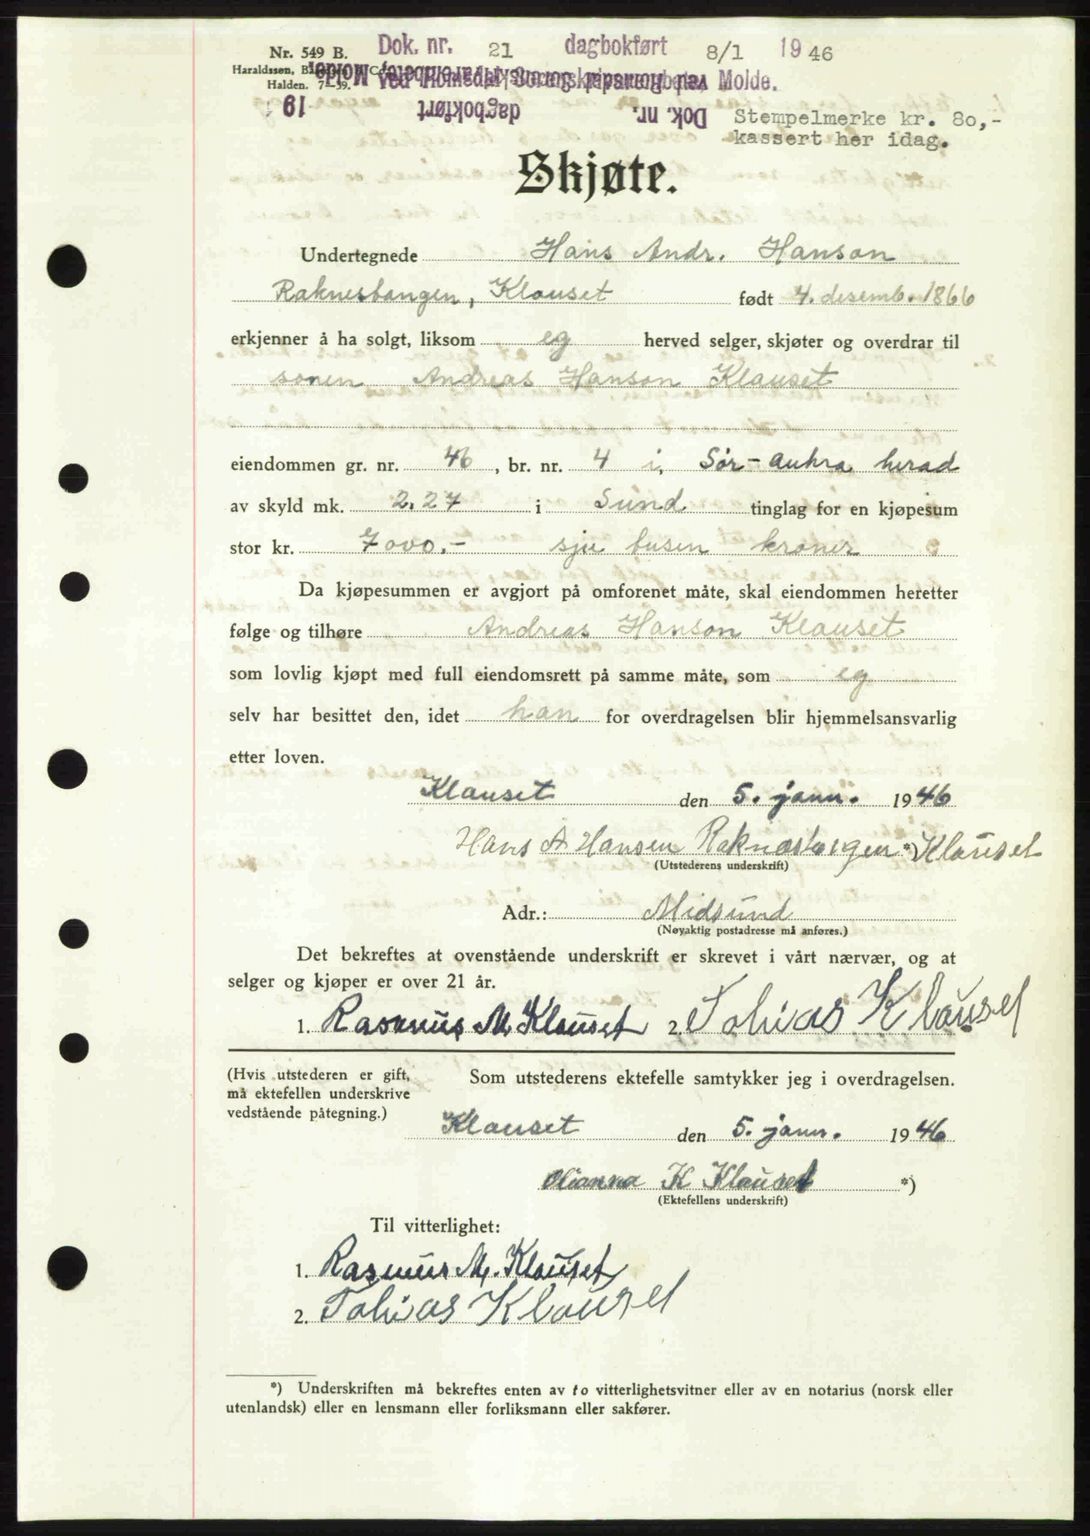 Nr. 549 B. Dok. nr. 21 dagbokført 8/1 1946
Haraldssen,
Halden. 7 - 39. Molde.
dagbokført 19
Dok. nr.
Stempelmerke kr. 80,-
kassert her idag.
Skjøte.
Undertegnede Hans Andr. Hanson
Raknesbangen, Klauset født 4. desemb. 1866
erkjenner å ha solgt, liksom eg herved selger, skjøter og overdrar til
sonen Andreas Hanson Klauset
eiendommen gr. nr. 46, br. nr. 4 i, Sør-aukra herad
av skyld mk. 2.27 i Sund tinglag for en kjøpesum
stor kr. 7000.- sju tusen kroner
Da kjøpesummen er avgjort på omforenet måte, skal eiendommen heretter
følge og tilhøre Andreas Hanson Klauset
som lovlig kjøpt med full eiendomsrett på samme måte, som eg
selv har besittet den, idet han for overdragelsen blir hjemmelsansvarlig
etter loven.
Klauset den 5. jann. 1946
Hans A Hansen Raknesbangen *) Klauset
(Utstederens underskrift)
Adr.: Midsund
(Nøyaktig postadresse må anføres.)
Det bekreftes at ovenstående underskrift er skrevet i vårt nærvær, og at
selger og kjøper er over 21 år.
1. Rasmus M Klauset 2. Tobias Klauset
(Hvis utstederen er gift, Som utstederens ektefelle samtykker jeg i overdragelsen.
må ektefellen underskrive
vedstående påtegning.)
Klauset den 5. jann. 1946
Olianna K Klauset *)
(Ektefellens underskrift)
Til vitterlighet:
1. Rasmus M. Klauset
2. Tobias Klauset
*) Underskriften må bekreftes enten av to vitterlighetsvitner eller av en notarius (norsk eller
utenlandsk) eller en lensmann eller forliksmann eller sakfører.